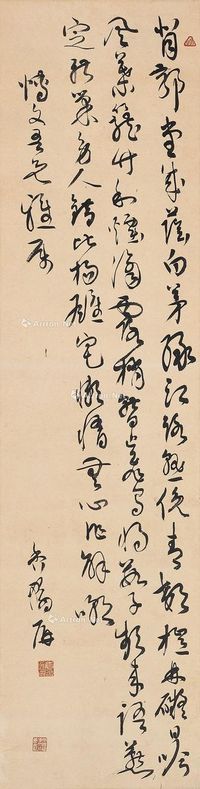 背郭堂成蔭白茅緣江路熟俯青郊榿林礙日吟
風葉籠竹和煙滴露梢暫止飛烏將數子頻來語燕
定新巢旁人錯比揚雄宅懶惰無心作解嘲
文吾兄雅屬